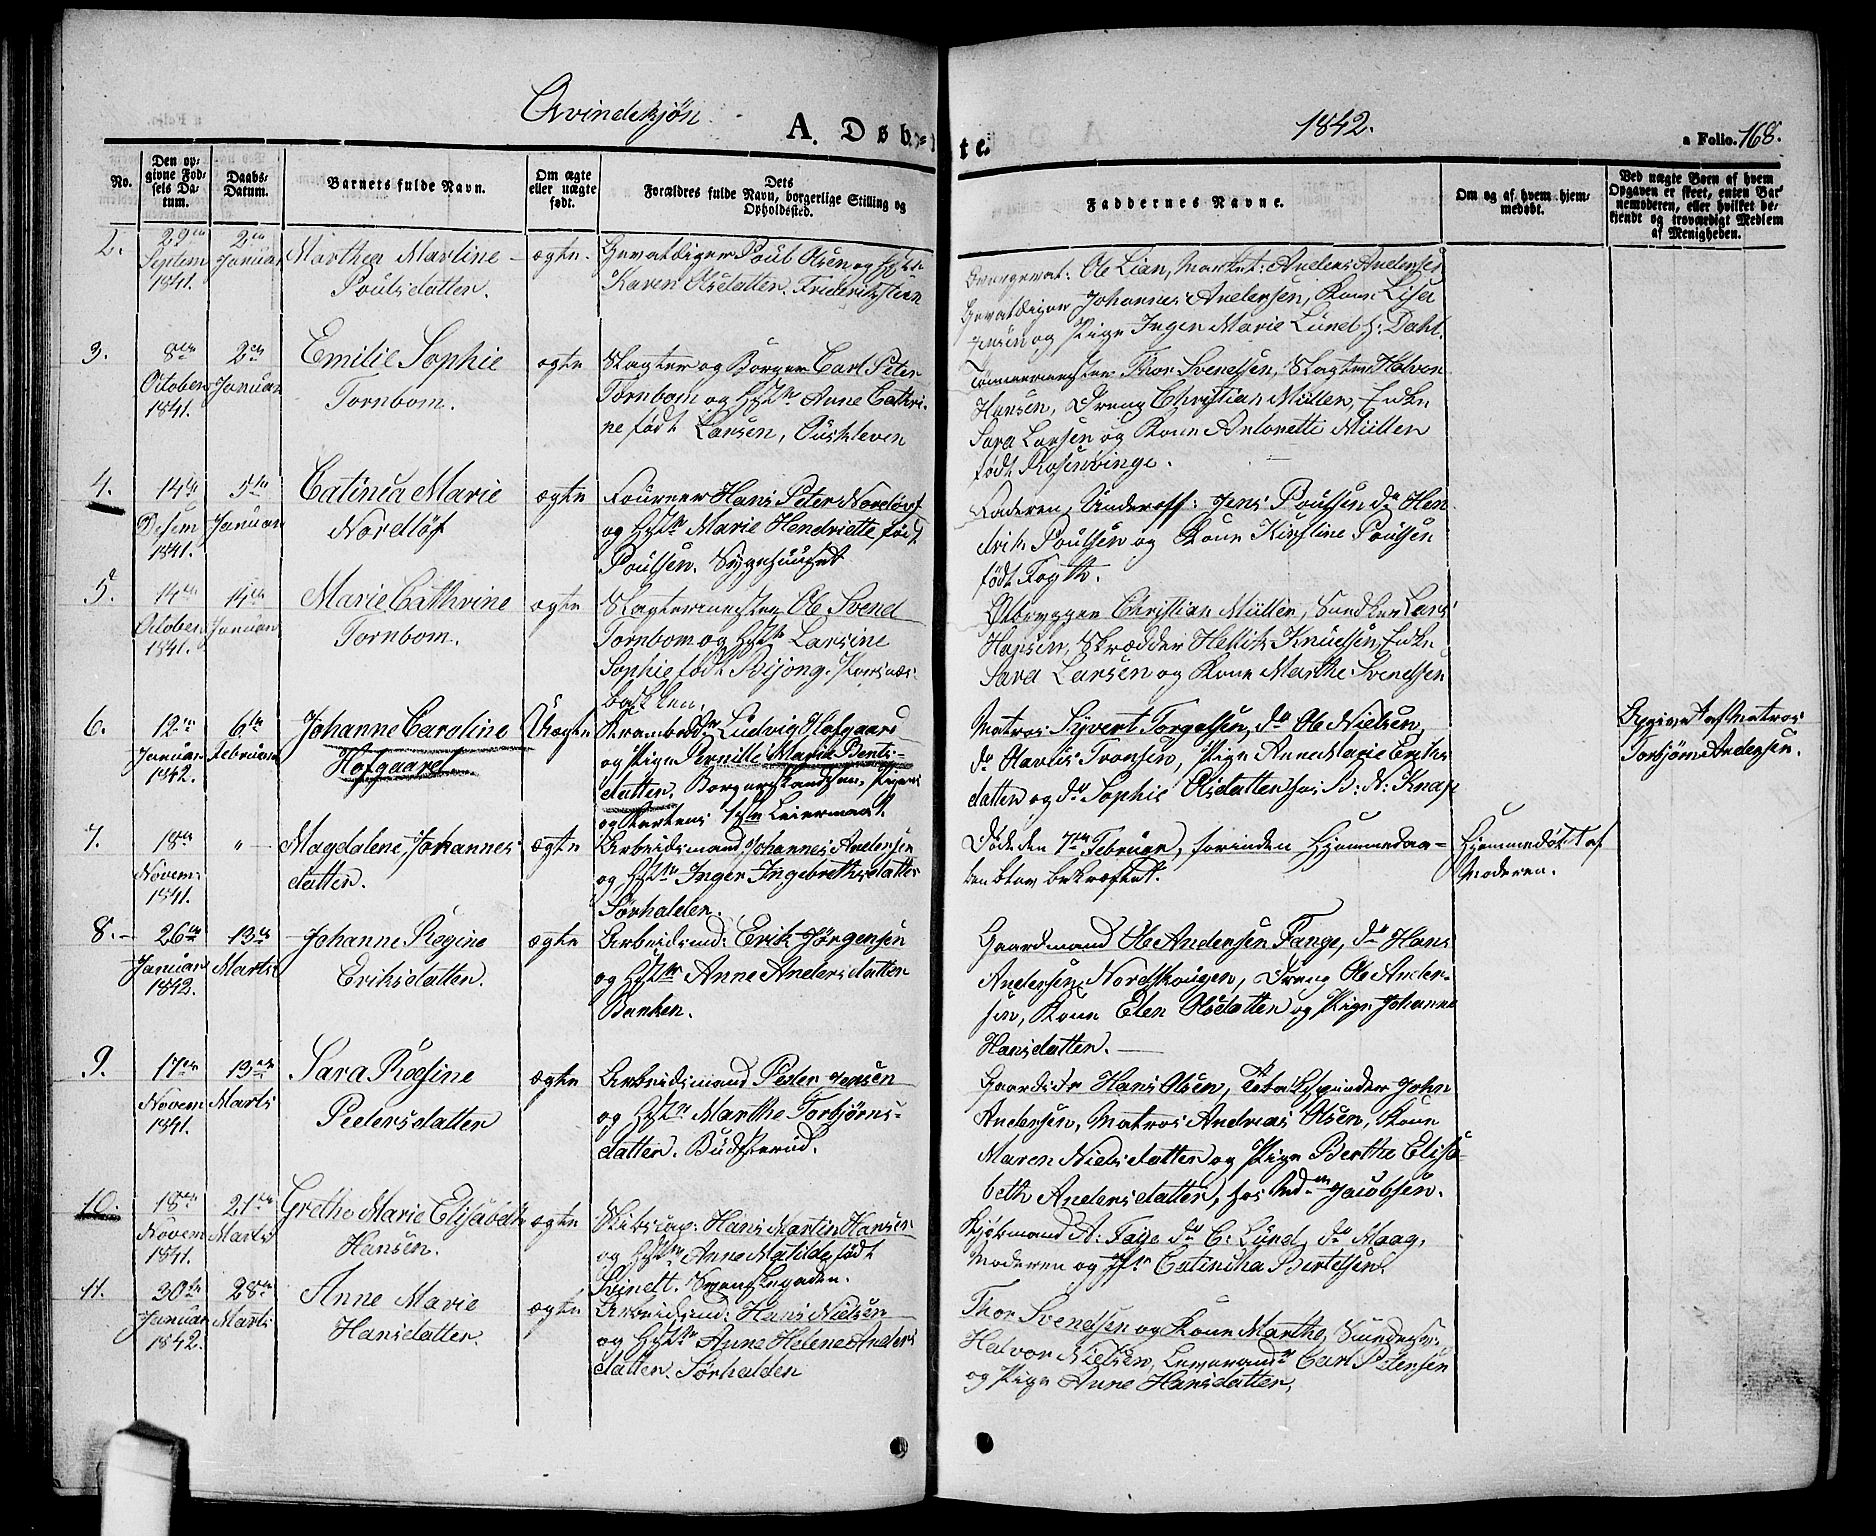 Qvindekjøn
A. Døbte.
1842.
a Folio. 168.
No.
Den opgivne Fødsels Datum.
Daabs-Datum.
Barnets fulde Navn.
Om ægte eller uægte født.
Dets Forældres fulde Navn, borgerlige Stilling og Opholdssted.
Faddernes Navne.
Om og af hvem hjemmedøbt.
Ved uægte Børn af hvem Opgaven er skeet, enten Barnemoderen, eller hvilket bekjendt og troværdigt Medlem af Menigheden.
2. 29de Septem 1841. 2den Januar Marthea Martine Poulsdatter. ægte. Gevaldiger Poul Olsen og Hstr
Karen Olsdatter. Frideriksteen
Ole Lian, Anders Andersen
Gevaldiger Johannes Andersen, Kone Lisa
og Pige Inger Marie Lund h: Dahl.
3. 8de October 1841. 2den Januar Emilie Sophie Tornbom. ægte Slagter og Borger Carl Peter
Tornbom og Hstr Anne Cathri-
ne født Larsen,
Tømmermester Thor Svendsen, Slagter Halvor
Hansen, Dreng Christian Müller, Enke
Sara Larsen og Kone Antonette Müller
født Rosenvinge.
4. 14de Desem 1841. 5te Januar Catinca Marie Nordløf ægte Foureer Hans Peter Nordløf
og Hstr Marie Hendriette født
Poulsen. Sygehuuset
Faderen, Underoff: Jens Poulsen do Hen
drik Poulsen og Kone Kirstine Poulsen
født Fogth.
5. 14de October 1841. 14de Januar Marie Cathrine Tornbom. ægte Slagtermester Ole Svend
Tornbom og Hstr Larsine
Sophie født Bijong.
bakken.
Ølbrygger Christian Müller, Snedker Lars
Hansen, Skrædder Hellik Knudsen, Enke
Sara Larsen og Kone Marthe Svendsen
6. 12te Januar 1842. 6te Februar Johanne Caroline Hofgaard Uægte Krambodr Ludvig Hofgaard
og Pige Pernille Maria Bents-
datter. Borgerskandsen, Pigens
og Karlens 1ste Leiermaal.
Matros Syvert Torgelsen, do Ole Nielsen,
do Havtis Tronsen, Pige Anne Marie Eriks
datter og do Sophie Olsdatter hos B: N: Knap
Opgivet af Matros
Torbjørn Andersen.
7. 18de Novem 1841. " Magdalene Johannes
datter. ægte Arbeidsmand Johannes Andersen
og Hstr Inger Ingebrethsdatter
Sørhalden.
Døde den 7de Februar, forinden Hjemmedaa-
ben blev bekræftet.
Hjemmedøbt af
Moderen.
8. 26de Januar 1842. 13de Marts Johanne Regine Eriksdatter. ægte Arbeidsmd: Erik Jørgensen
og Hstr Anne Andersdatter
Banken.
Gaardmand Ole Andersen Fange, do Hans
Andersen Nordskougen, Dreng Ole Ander-
sen, Kone Elen Olsdatter og Pige Johanne
Hansdatter.
9. 17de Novem 1841. 13de Marts Sara Regine Pedersdatter ægte Arbeidsmand Peder Jensen
og Hstr Marthe Torbjørns-
datter. Budskerud.
Hans Olsen, Tobakspinder John
Andersen, Matros Andreas Olsen, Kone
Maren Nielsdatter og Pige Berthe Elisa
beth Andersdatter, hos Jacobsen.
10. 18de Novem 1841. 21de Marts Grethe Marie Elisabeth Hansen. ægte Skibscap: Hans Martin Hansen
og Hstr Anne Matilde født
Svinett. Svenskegaden.
Kjøbmand A: Faye do C: Lund, do Maag,
Moderen og Jfr Catincka Bertelsen.
11. 30te Januar 1842. 28de Marts Anne Marie Hansdatter. ægte Arbeidsmd: Hans Nielsen
og Hstr Anne Helene Anders
datter. Sørhalden
Thor Svendsen og Kone Marthe,
Halvor Nielsen, Carl Petersen
og Pige Anne Hansdatter,